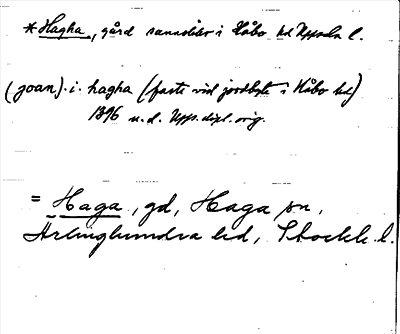 *Hagha, gård sannolikt i Håbo hd Uppsala l.
(joan). i. hagha (faste vid jordbyte i Håbo hd)
1396 u.d. Upps. dipl. orig.
= Haga, gd, Haga sn,
Ärlinghundra hd, Stockh. l.